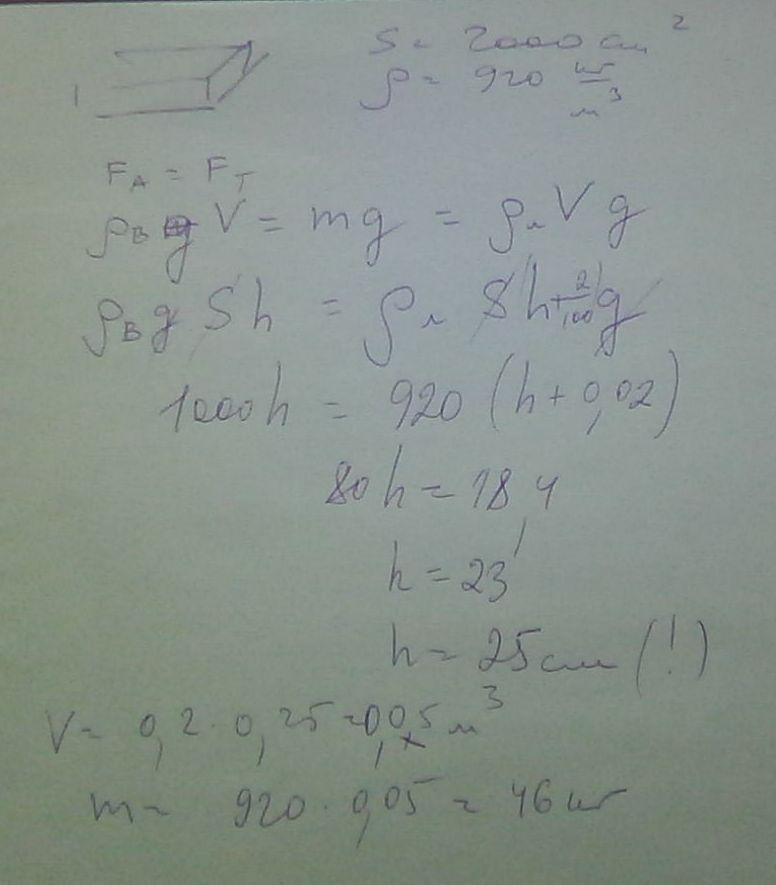 S = 2000 см²
ρ = 920 кг/м³
F_A = F_T
ρ_в g V = mg = ρ_л V g
ρ_в g S h = ρ_л S (h + 2/100) g
1000h = 920 (h + 0,02)
80 h = 18,4
h = 23
h = 25 см (!)
V = 0,2 · 0,25 = 0,05 м³
m = 920 · 0,05 = 46 кг